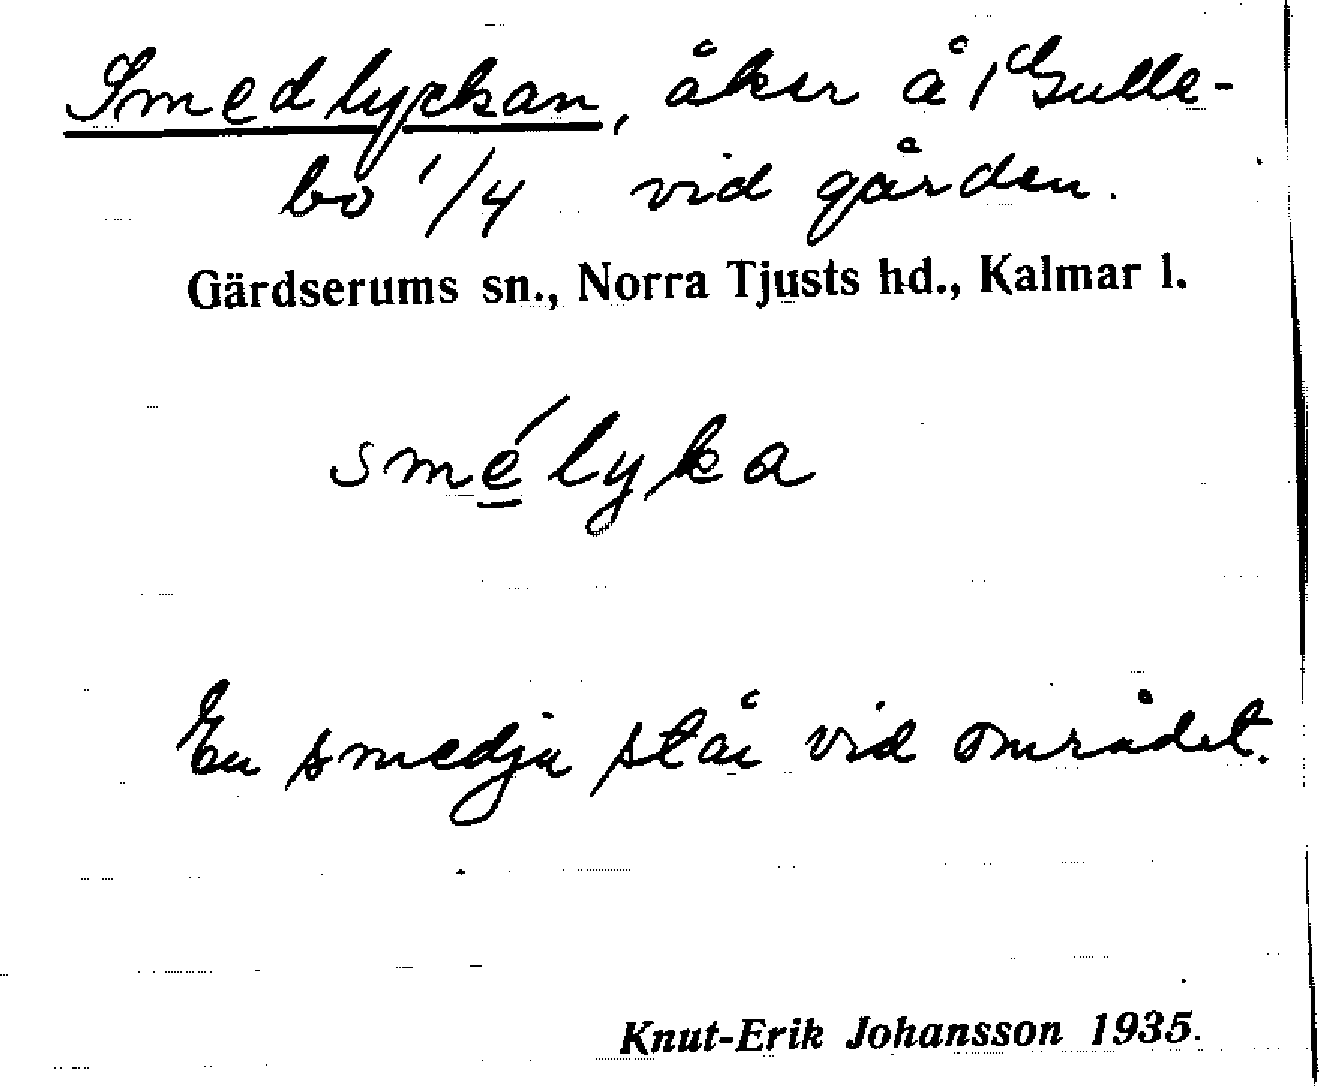 Smedlyckan, åker å Gulle-
bo 1/4 vid gården.
Gärdserums sn., Norra Tjusts hd., Kalmar l.
smélyka
En smedja står vid området.
Knut-Erik Johansson 1935.